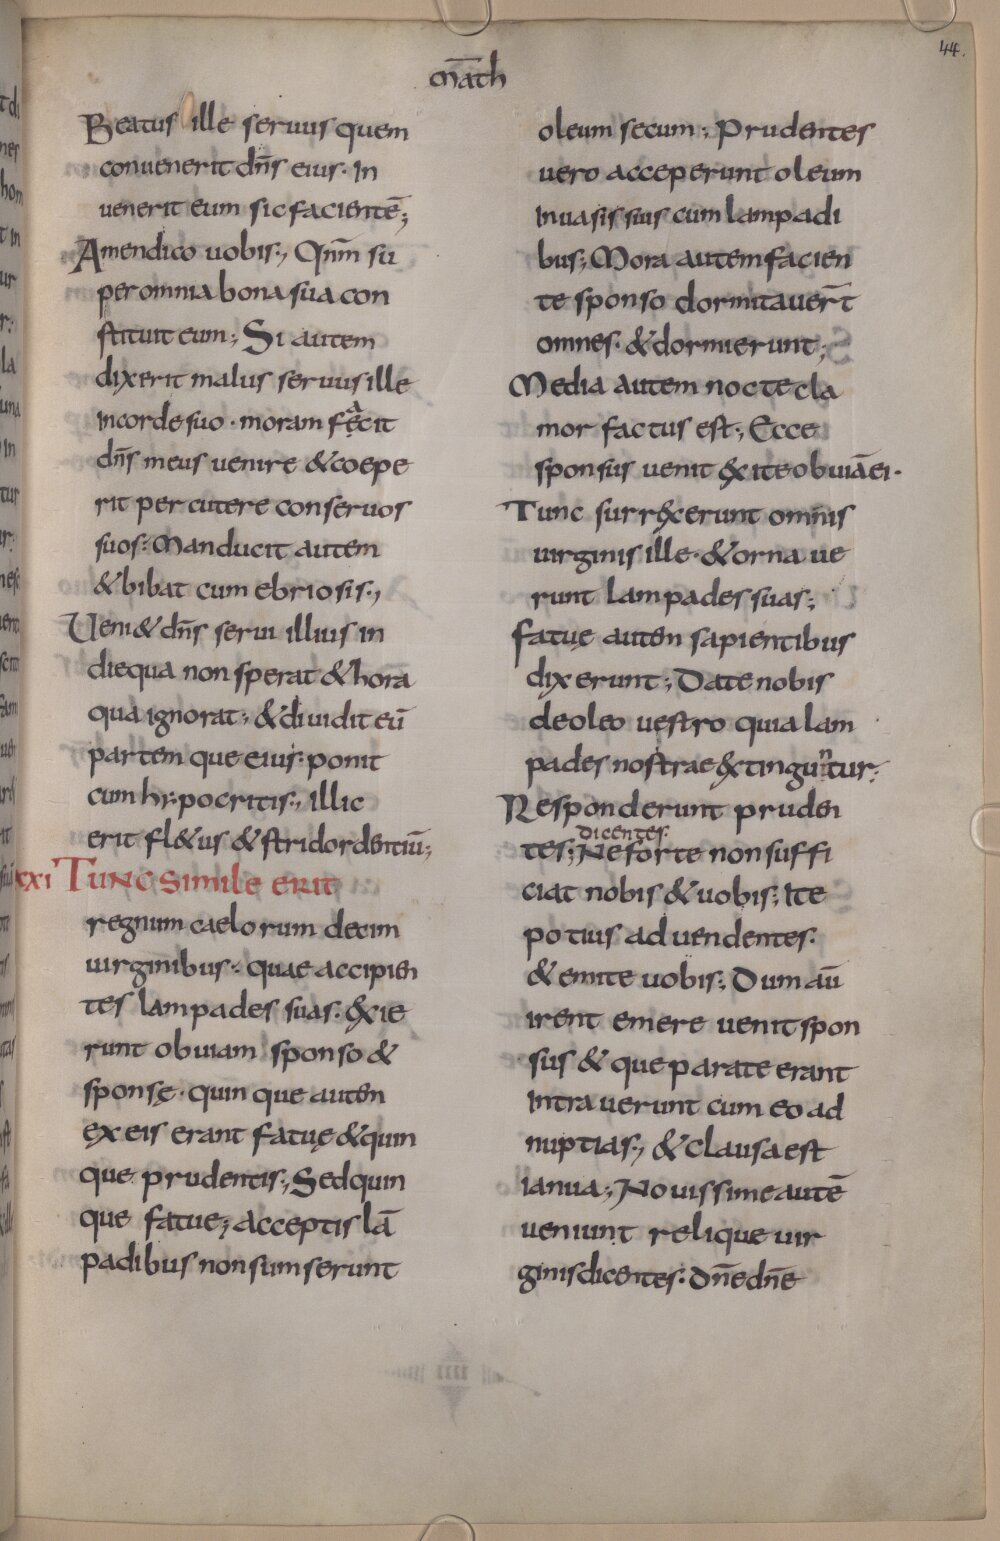 44.
m̄ath
Beatus ille seruus quem
conuenerit dn̄s eius· In
uenerit eum sic facientē;
Amendico uobis:, Qnm̄ su
per omnia bona sua con
stituit eum; Si autem
dixerit malus seruus ille
incorde suo · moram fęcit
dn̄s meus uenire &coepe
rit percutere conseruos
suos: Manducit autem
&bibat cum ebriosis:,
Ueni& dn̄s serui illius in
diequa non sperat &horā
qua ignorat; &diuidit eū
partem que eius: ponit
cum hypocritis:, illic
erit fl&us &stridordentiū;
xxi Tunc simile erit
regnum caelorum decim
uirginibus: quae accipien
tes lampades suas: &xie
runt obuiam sponso &
sponsę · quinque auten
ęx eis erant fatuę &quin
que prudentis:, Sedquin
que fatue; acceptis lā
padibus non sumserunt
oleum secum; Prudentes
uero acceperunt oleum
inuasis suis cum lampadi
bus; Mora autem facien
te sponso dormitauer̄t
omnes· &dormierunt;
Media autem nocte cla
mor factus est; Ecce
sponsus uenit &xite obuiā ei·
Tunc surr&xerunt omnis
uirginis ille· &ornaue
runt lampades suas;
fatuę auten sapientibus
dixerunt; Date nobis
deoleo uestro quia lam
pades nostrae &xtinguntur;
Responderunt pruden
dicentes:
tes; Ne forte non suffi
ciat nobis &uobis; Ite
potius ad uendentes·
&emite uobis; Dum aū
irent emere uenit spon
sus & que parate erant
intrauerunt cum eo ad
nuptias:, &clausa est
ianua:, Nouissime autē
ueniunt relique uir
ginis dicentes: dn̄e dn̄e